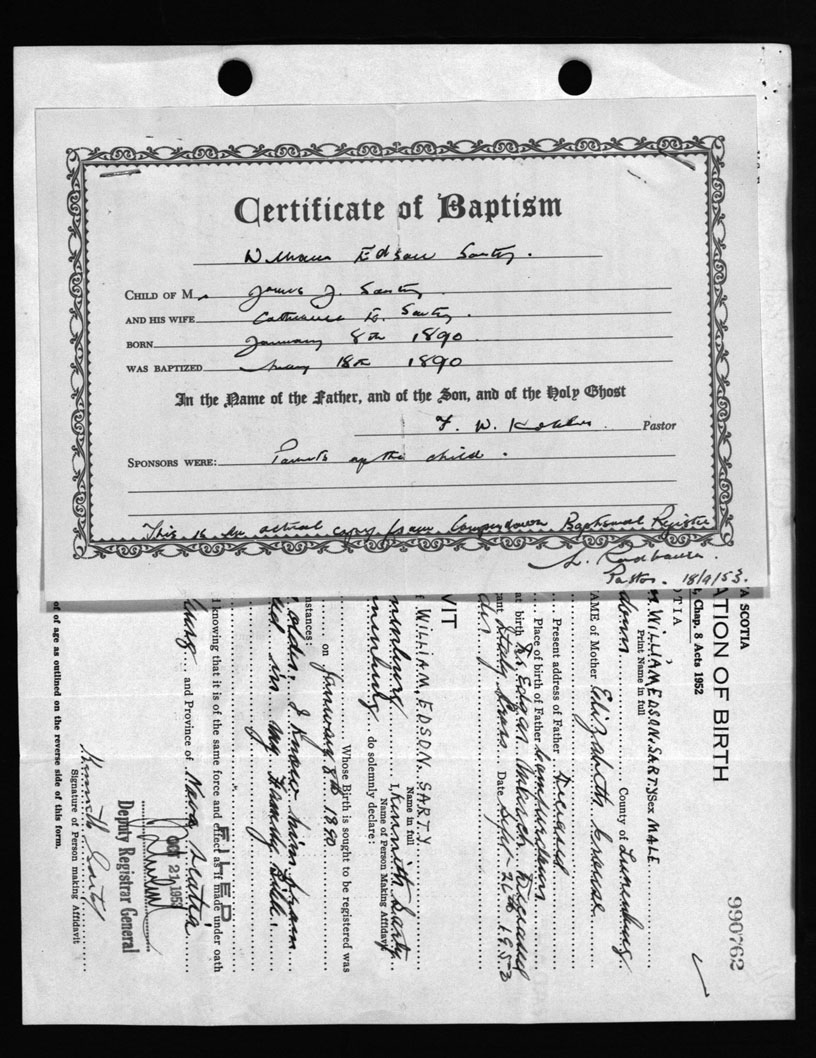 Certificate of Baptism
William Edson Sarty.
CHILD OF Mr James J. Sarty
AND HIS WIFE Catherine E. Sarty.
BORN January 8th 1890
WAS BAPTIZED 18th 1890
In the Name of the Father, and of the Son, and of the Holy Ghost
F. W. Pastor
SPONSORS WERE: Parents of the child.
This is an actual copy from Conquerall Baptismal Register
Pastor. 18/9/53.
A SCOTIA
, Chap. 8 Acts 1952
ATION OF BIRTH
990762
OTIA
WILLIAM, EDSON, SARTY Sex MALE
Print Name in full
County of Lunenburg
AME of Mother Elizabeth
Present address of Father Deceased
Place of birth of Father
at birth Mrs Edgar Deceased
ant Date Sept 26th 1953
VIT
WILLIAM, EDSON, SARTY
Name in full
I, Kenneth Sarty
Name of Person Making Affidavit
do solemnly declare:
Whose Birth is sought to be registered was
on January 8th 1890
nstances:
older, I know him from
in my Family Bible.
d knowing that it is of the same force and effect as if made under oath
burg and Province of Nova Scotia
FILED
OCT 21 1953
Deputy Registrar General
Kenneth Sarty
Signature of Person making Affidavit
of of age as outlined on the reverse side of this form.